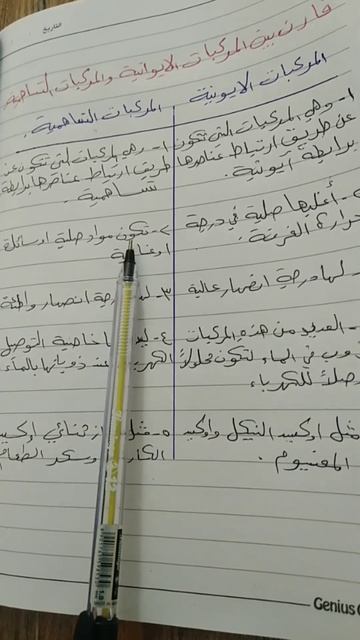 التاريخ
قارن بين المركبات الايونية والمركبات التساهمية
المركبات الايونية
١- وهي المركبات التي تتكون
عن طريق ارتباط عناصرها
برابطة أيونية.
أغلبها صلبة في درجة
حرارة الغرفة.
لها درجة انصهار عالية
العديد من هذه المركبات
ذوب في الماء لتكون محلولاً
موصلاً للكهرباء
مثل اوكسيد النيكل واوكسيد
المغنسيوم.
المركبات التساهمية.
١- وهي المركبات التي تتكون عن
طريق ارتباط عناصرها برابطة
تساهمية.
٢- تكون مواد صلبة او سائلة
او غازية
٣- درجة انصهار واطئة
٤- خاصية التوصيل
الكهربائي عند ذوبانها بالماء
٥- مثل ثنائي اوكسيد
الكاربون وسكر الطعام
Genius